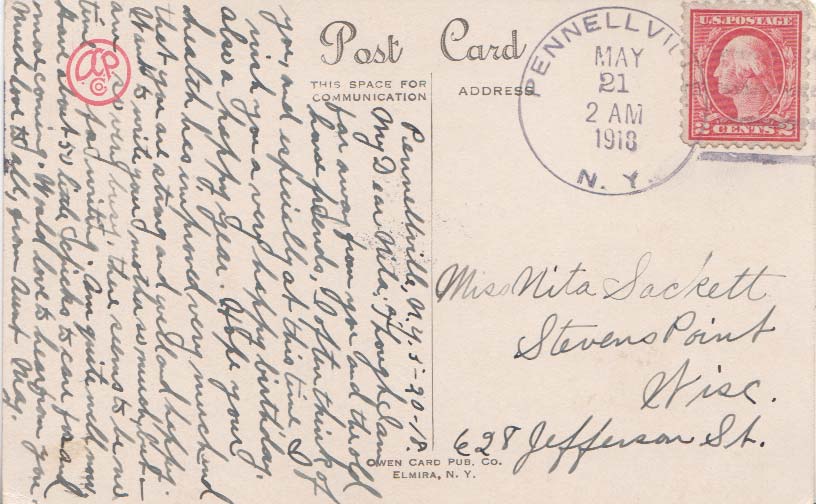 Post Card
THIS SPACE FOR
COMMUNICATION
ADDRESS
PENNELLVIL
MAY
21
2 AM
1918
N. Y.
U.S. POSTAGE
2 CENTS 2
APCo
Pennellville, N.Y. 5-20-18.
My Dear Nita, Though I am
far away from you and the old
home friends, I often think of
you, and especially at this time I
wish you a very happy birthday,
also a happy year. Hope your
health has improved very much and
that you are strong and well and happy.
Want to write your mother so much, but
am so very busy, there seems to be no
time for writing. Am quite well now,
have about 50 little chicks to care for and
more coming. Would love to hear from you.
Much love to all, from Aunt May.
Miss Nita Sackett
Stevens Point
Wisc.
628 Jefferson St.
OWEN CARD PUB. CO.
ELMIRA, N. Y.